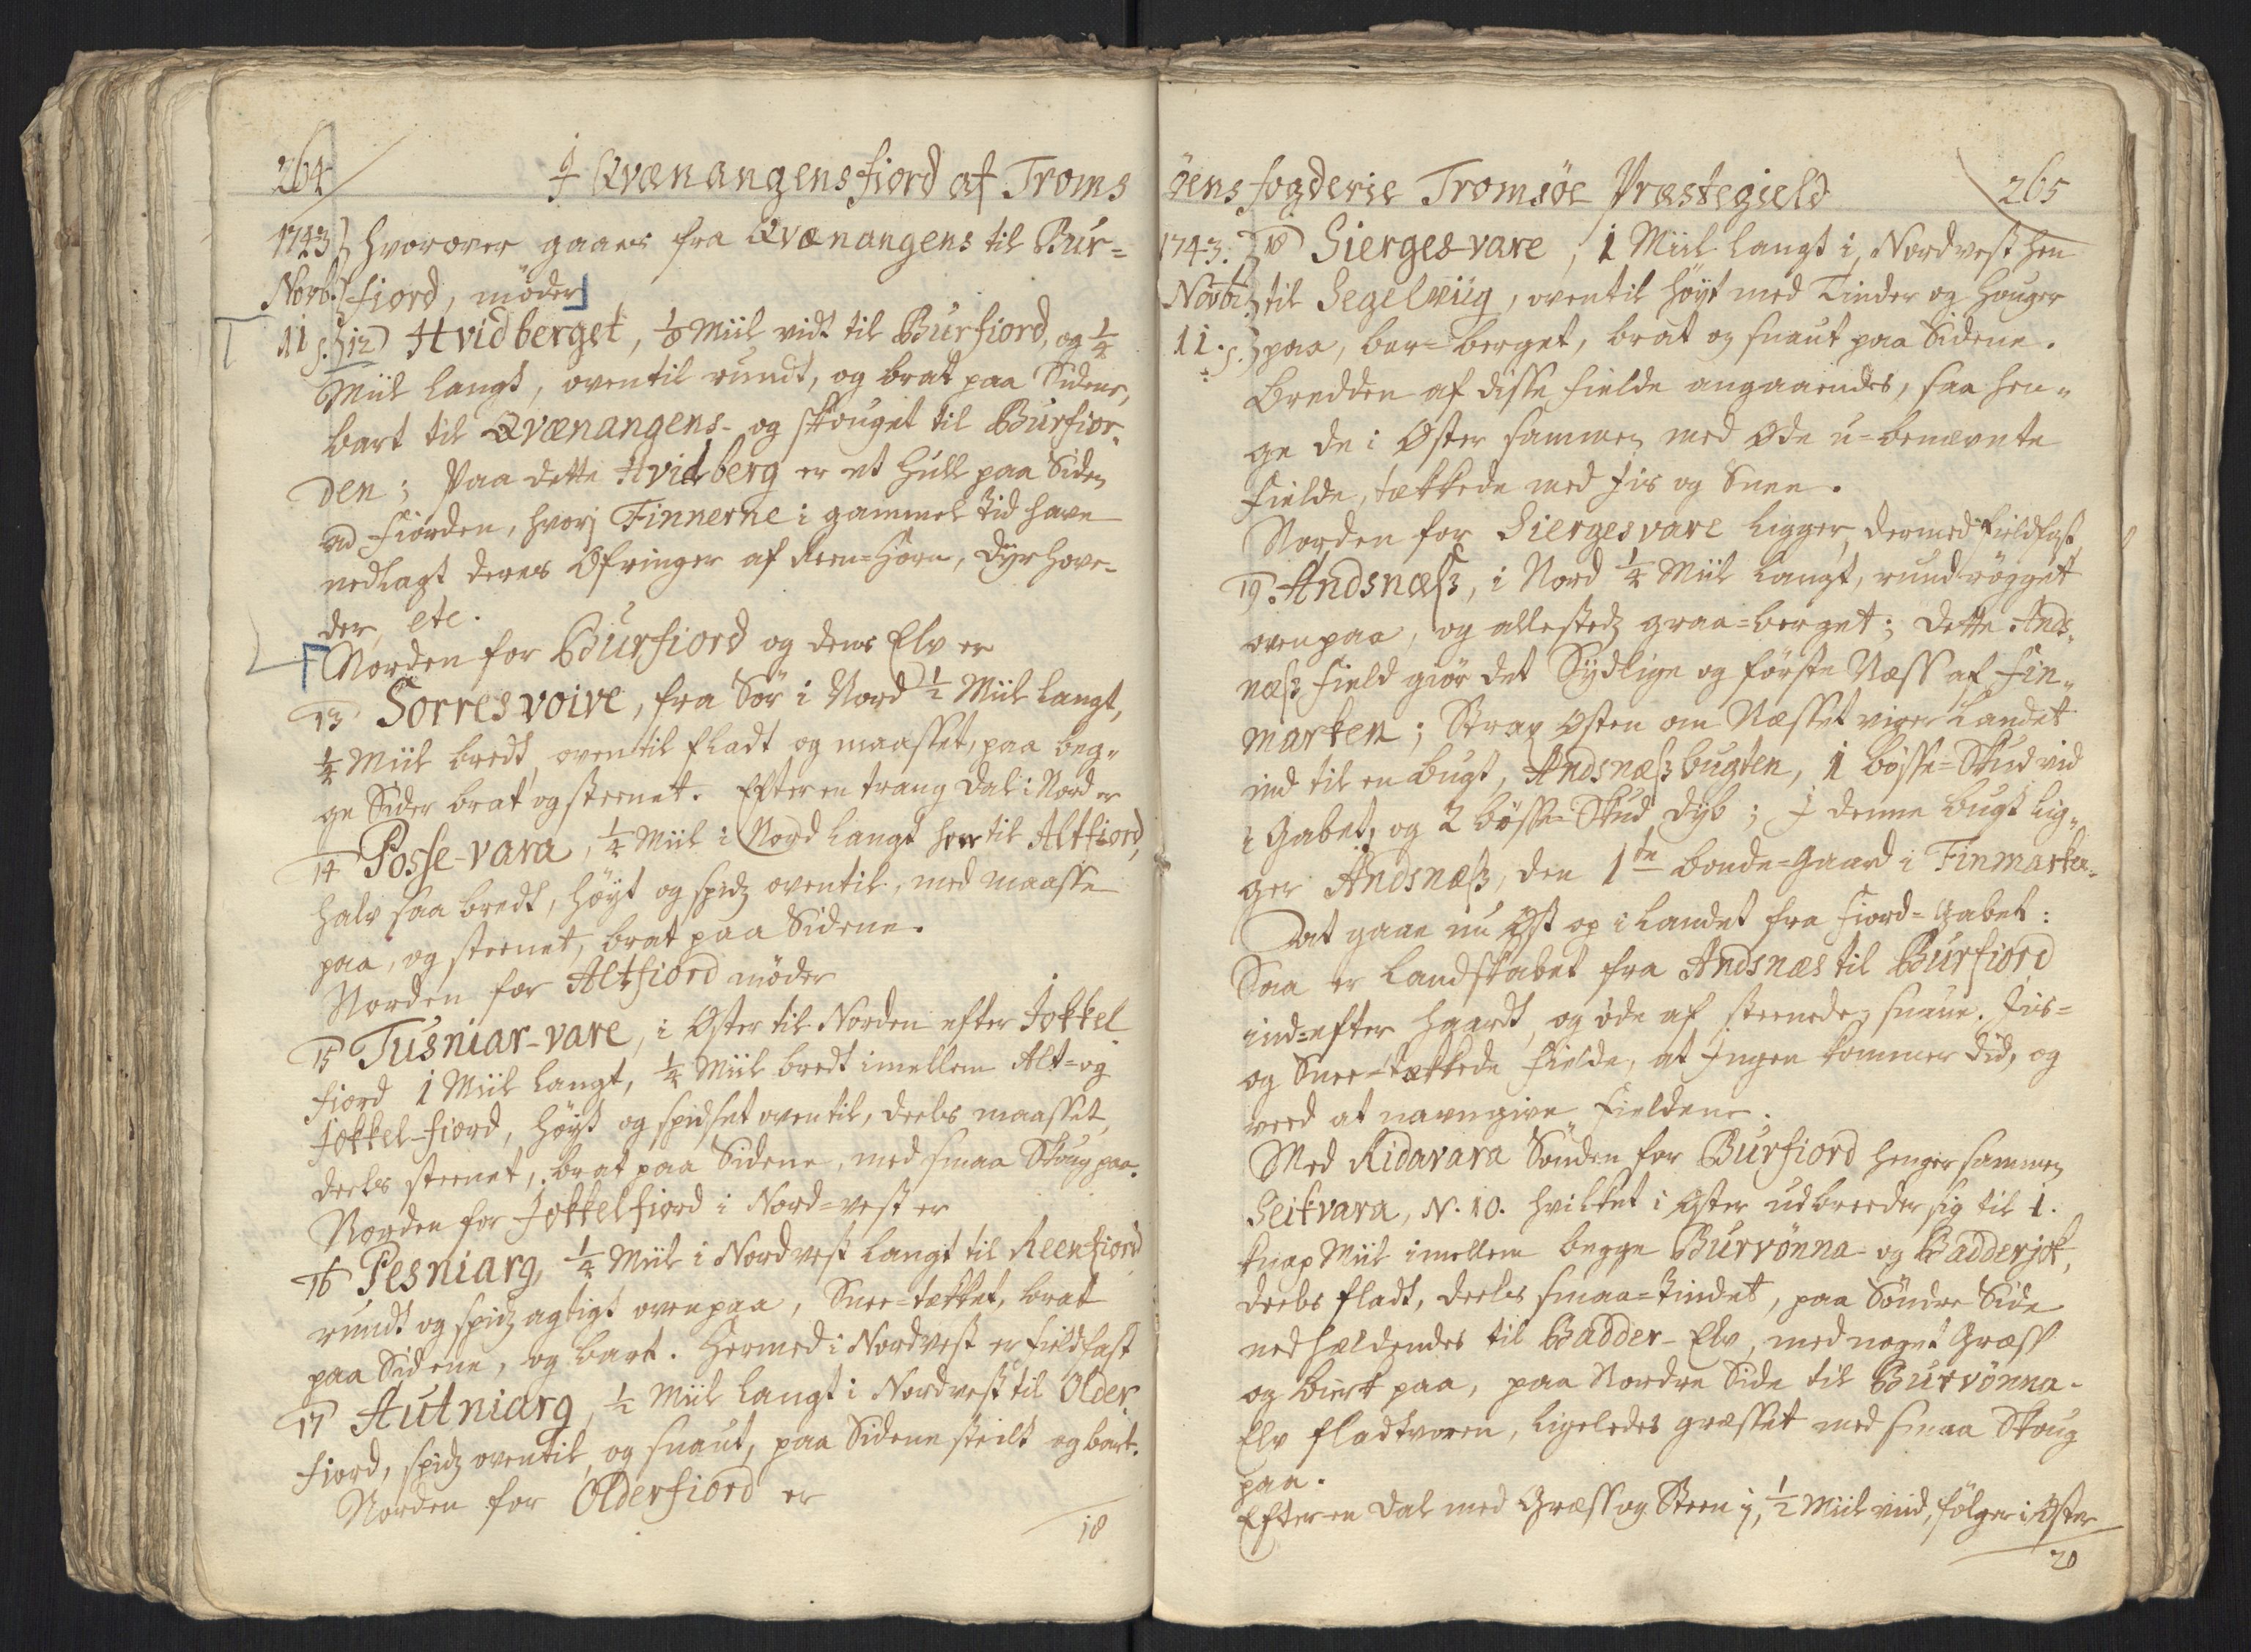 264
I Qvænangensfiord af Troms
1743
Novb.
11
hvorover gaaes fra Qvænangens til Bur=
fiord, møder
12 Hvidberget, 1/8 Miil vidt til Burfiord, og 1/4
Miil langt, oventil rundt, og brat paa Sidene,
bart til Qvænangens- og skouget til Burfior-
den; Paa dette Hvidberg er et Hull paa Siden
ad Fiorden, hvorj Finnerne i gammel tid have
nedlagt deres Ofringer af Reen=Horn, dyrhove-
der, etc.
Norden for Burfiord og dens Elv er
13 Sorresvoive, fra Sør i Nord 1/2 Miil langt,
1/4 Miil bredt, oventil fladt og maasset, paa beg-
ge Sider brat og steenet. Efter en trang dal i Nord er
14 Posse-vara, 1/4 Miil i Nord langt hen til Altfiord,
halv saa bredt, høyt og spidz oventil, med maasse
paa, og steenet, brat paa Sidene.
Norden for Altfiord møder
15 Tusniar-vare, i Øster til Norden efter Jokkel
fiord 1 Miil langt, 1/4 Miil bredt imellem Alt=og
Jokkel-fiord, høyt og spidset oventil, deels maasset,
deels steenet, brat paa Sidene, med smaa Skoug paa.
Norden for Jokkelfiord i Nord=vest er
16 Pesniarg, 1/4 Miil i Nordvest langt til Reenfiord
rundt og spidz agtigt ovenpaa, Snee=tækket, brat
paa Sidene, og bart. Hermed i Nordvest er fieldfast
17 Autniarg, 1/2 Miil langt i Nordvest til Older
fiord, spidz oventil, og snaut, paa Sidene steilt og bart.
Norden for Olderfiord er
18
øens fogderie Tromsøe Præstegield
265
1743.
Novbr.
11.
18 Siergesvare, 1 Miil langt i Nordvest hen
til Segelviig, oventil høyt med Tinder og Houger
paa, bar=berget, brat og snaut paa Sidene.
Bredden af disse fielde angaaendes, saa hen-
ge de i Øster sammen med Øde u=benævnte
Fielde, tækkede med Jis og Snee.
Norden for Siergesvare ligger, dermed fieldfast
19. Andsnæss, i Nord 1/4 Miil langt, rundrøgget
ovenpaa, og allestedz graa=berget; dette Ands-
næss field giør det Sydlige og første Næss af Fin-
marken; Strax Østen om Næsset viger Landet
ind til en bugt, Andsnæssbugten, 1 bøsse=Skud vid
i Gabet, og 2 bøsse=Skud dyb; I denne bugt lig-
ger Andsnæss, den 1te bonde=Gaard i Finmarken.
At gaae nu Øst op i Landet fra Fiord=Gabet:
Saa er Landskabet fra Andsnæs til Burfiord
ind=efter haardt, og øde af steenede, snaue, Jis=
og Snee=tækkede Fielde, at Ingen kommer did, og
veed at navngive Fieldene.
Med Ridavara Sønden for Burfiord henger sammen
Seikvara, N. 10. hvilket i Øster udbreeder sig til 1.
knap Miil imellem begge Burvønna- og Badderjok,
deels fladt, deels smaa=tindet, paa Søndre Side
nedhældendes til Badder-Elv, med noget Græss
og birk paa, paa Nordre Side til Burvønna-
Elv fladtvoren, ligeledes græsset med smaa Skoug
paa.
Efter en dal med Græss og Steen i, 1/2 Miil viid, følger i Øster
20